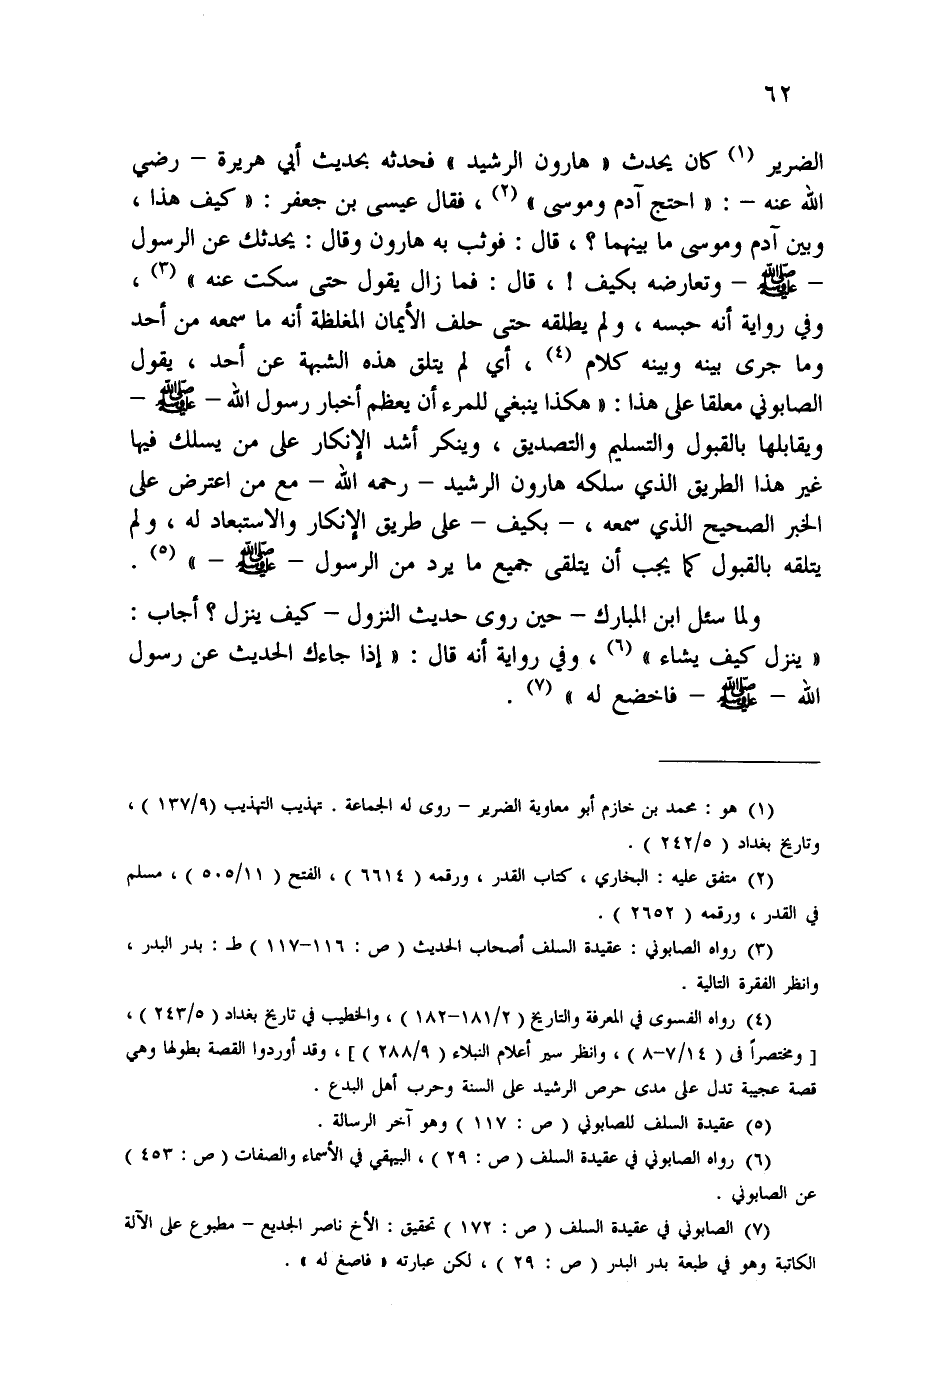 ٦٢
الضرير (١) كان يحدث « هارون الرشيد » فحدثه بحديث أبي هريرة – رضي
الله عنه – : « احتج آدم وموسى » (٢) ، فقال عيسى بن جعفر : « كيف هذا ،
وبين آدم وموسى ما بينهما ؟ ، قال : فوثب به هارون وقال : يحدثك عن الرسول
– ﷺ – وتعارضه بكيف ! ، قال : فما زال يقول حتى سكت عنه » (٣) ،
وفي رواية أنه حبسه ، ولم يطلقه حتى حلف الأيمان المغلظة أنه ما سمعه من أحد
وما جرى بينه وبينه كلام (٤) ، أي لم يتلق هذه الشبهة عن أحد ، يقول
الصابوني معلقا على هذا : « هكذا ينبغي للمرء أن يعظم أخبار رسول الله – ﷺ –
ويقابلها بالقبول والتسليم والتصديق ، وينكر أشد الإنكار على من يسلك فيها
غير هذا الطريق الذي سلكه هارون الرشيد – رحمه الله – مع من اعترض على
الخبر الصحيح الذي سمعه ، – بكيف – على طريق الإنكار والاستبعاد له ، ولم
يتلقه بالقبول كما يجب أن يتلقى جميع ما يرد من الرسول – ﷺ – » (٥) .
ولما سئل ابن المبارك – حين روى حديث النزول – كيف ينزل ؟ أجاب :
« ينزل كيف يشاء » (٦) ، وفي رواية أنه قال : « إذا جاءك الحديث عن رسول
الله – ﷺ – فاخضع له » (٧) .
(١) هو : محمد بن خازم أبو معاوية الضرير – روى له الجماعة . تهذيب التهذيب (١٣٧/٩ ) ،
وتاريخ بغداد ( ٢٤٢/٥ ) .
(٢) متفق عليه : البخاري ، كتاب القدر ، ورقمه ( ٦٦١٤ ) ، الفتح ( ٥٠٥/١١ ) ، مسلم
في القدر ، ورقمه ( ٢٦٥٢ ) .
(٣) رواه الصابوني : عقيدة السلف أصحاب الحديث ( ص : ١١٦–١١٧ ) طـ : بدر البدر ،
وانظر الفقرة التالية .
(٤) رواه الفسوى في المعرفة والتاريخ ( ١٨١/٢–١٨٢ ) ، والخطيب في تاريخ بغداد ( ٢٤٣/٥ ) ،
[ ومختصراً فى ( ٧/١٤–٨ ) ، وانظر سير أعلام النبلاء ( ٢٨٨/٩ ) ] ، وقد أوردوا القصة بطولها وهي
قصة عجيبة تدل على مدى حرص الرشيد على السنة وحرب أهل البدع .
(٥) عقيدة السلف للصابوني ( ص : ١١٧ ) وهو آخر الرسالة .
(٦) رواه الصابوني في عقيدة السلف ( ص : ٢٩ ) ، البيهقي في الأسماء والصفات ( ص : ٤٥٣ )
عن الصابوني .
(٧) الصابوني في عقيدة السلف ( ص : ١٧٢ ) تحقيق : الأخ ناصر الجديع – مطبوع على الآلة
الكاتبة وهو في طبعة بدر البدر ( ص : ٢٩ ) ، لكن عبارته « فاصغ له » .